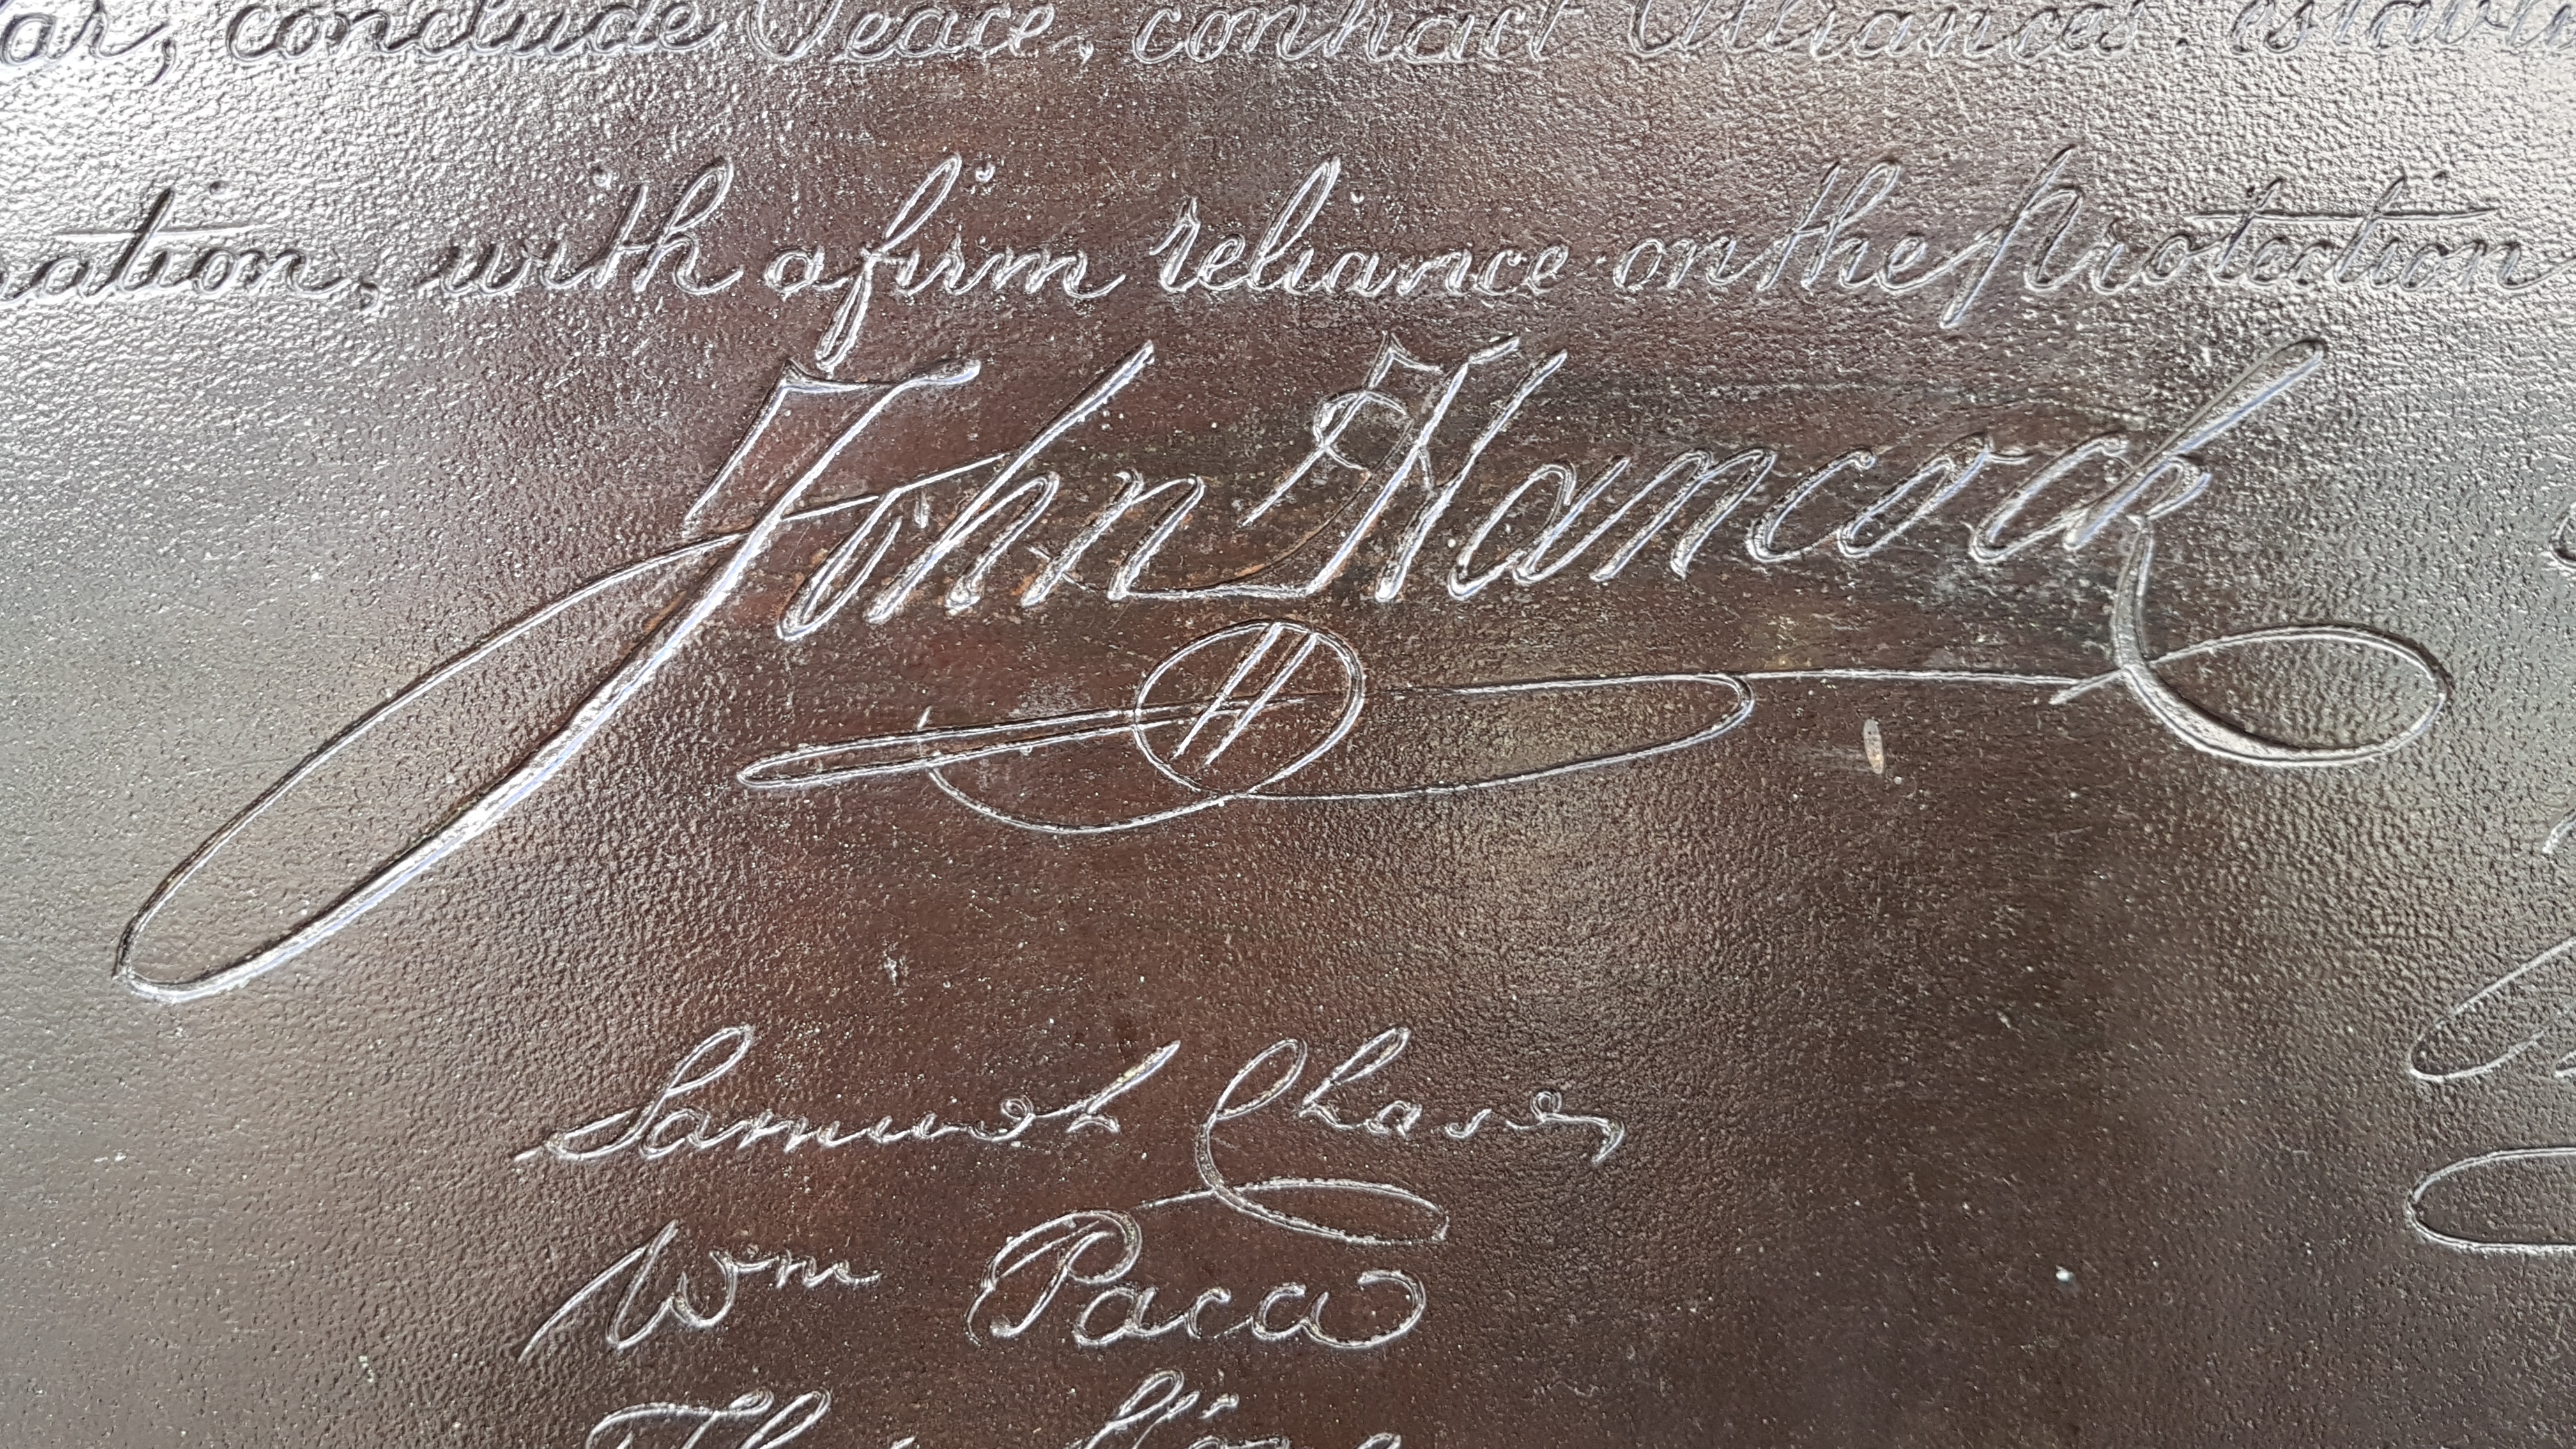 ar, conclude Peace, contract Alliances, establi
ration, with a firm reliance on the Protection
John Hancock
H
Samuel Chase
Wm Paca